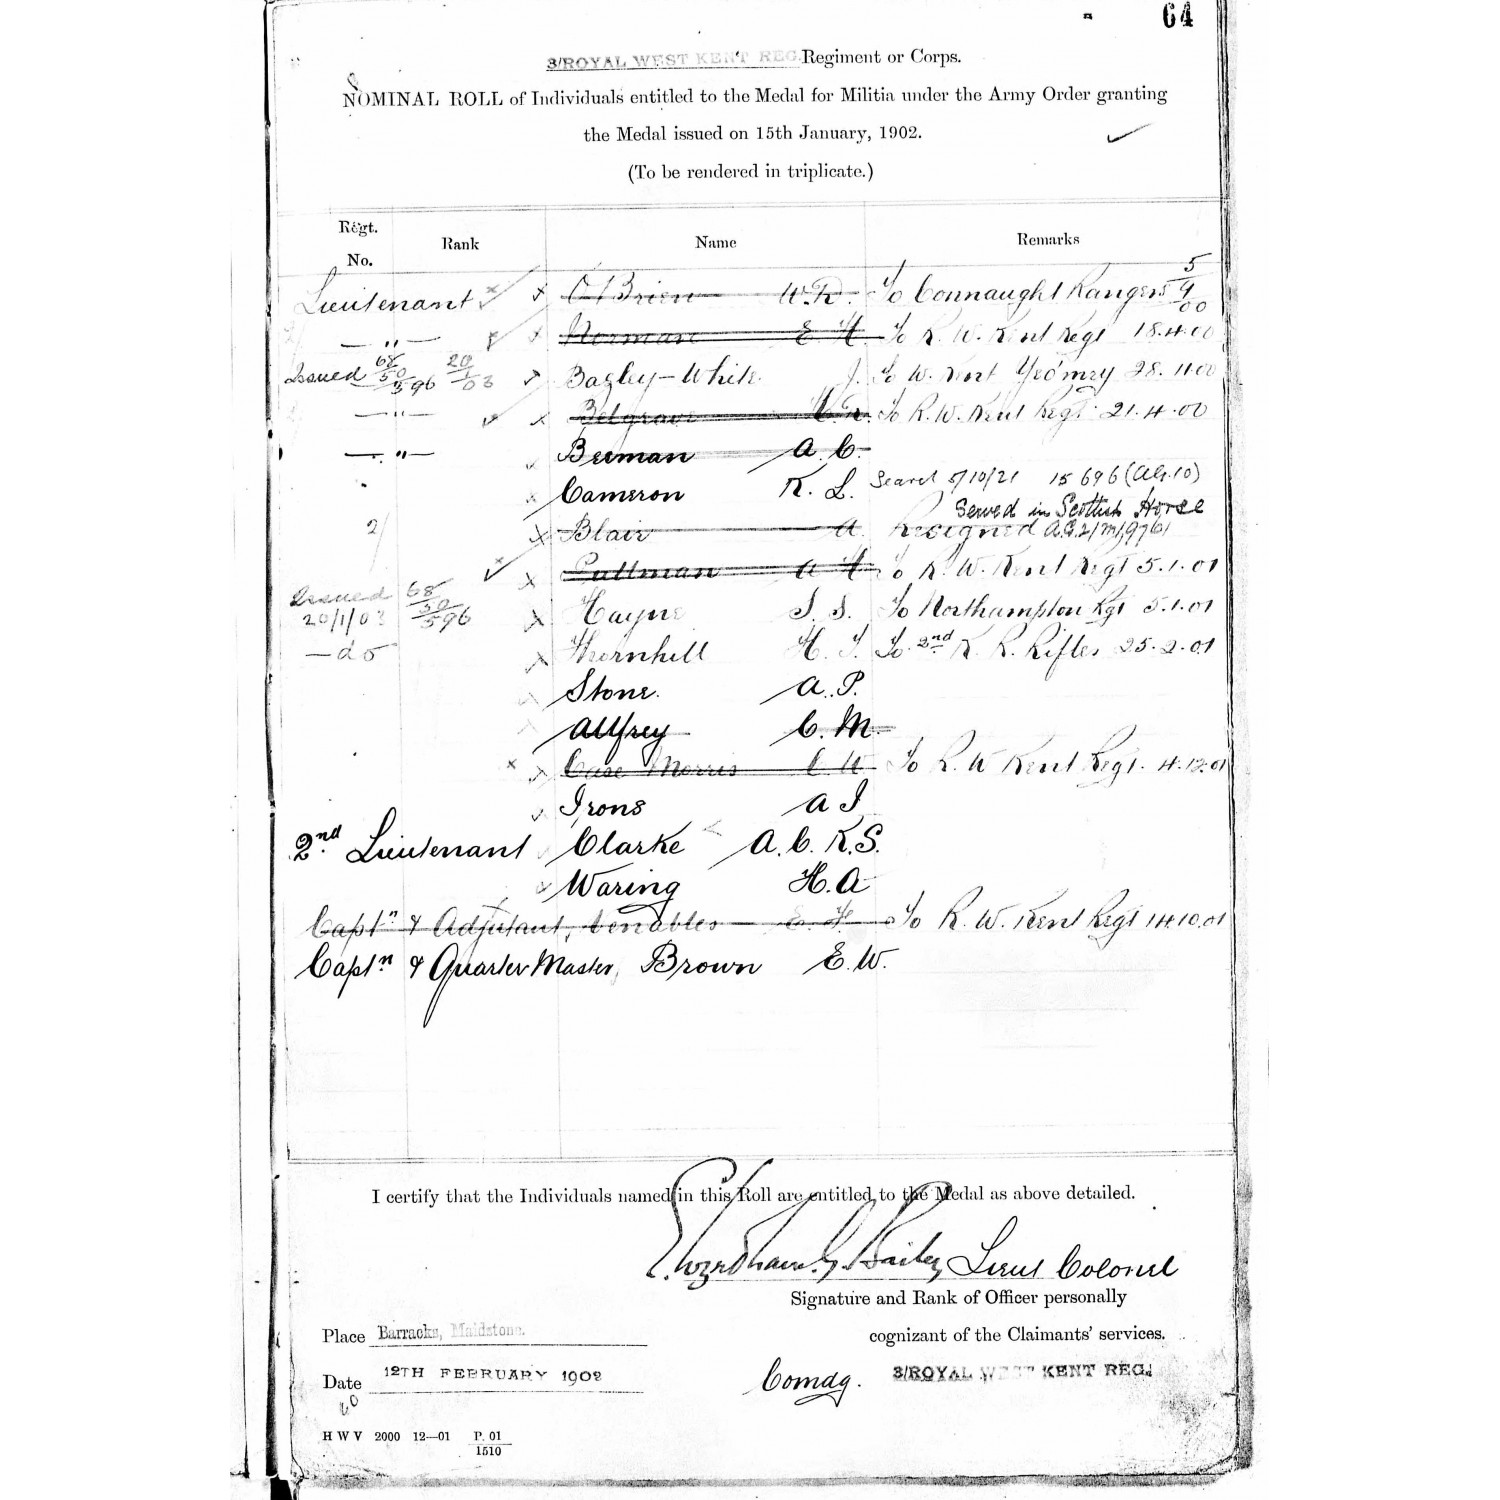 64
3/ROYAL WEST KENT REG. Regiment or Corps.
NOMINAL ROLL of Individuals entitled to the Medal for Militia under the Army Order granting
the Medal issued on 15th January, 1902.
(To be rendered in triplicate.)
Regt. No. Rank Name Remarks
Lieutenant O'Brien W.R. To Connaught Rangers 5/4/00
—"— Norman E H. To R. W. Kent Regt 18.4.00
Issued 68/50/596 20/1/03 Bagley-White J. To W. Kent Yeo'mry 28.11.00
—"— Belgrave To R. W. Kent Regt 21.4.00
—"— Beeman A. C.
Cameron K. L. Search 5/10/21 15696 (AG.10)
Served in Scottish Horse
2/ Blair A. Resigned A.G.2/M/9761
Pullman A H. To R. W. Kent Regt 5.1.01
Issued 20/1/03 68/50/596 Hayne S. S. To Northampton Rgt 5.1.01
—do Thornhill H. T. To 2nd K. R. Rifles 25.2.01
Stone. A. P.
Allfrey C. M.
Case Morris C W To R. W Kent Regt. 4.12.01
Irons A J
2nd Lieutenant Clarke A. C. K. S.
Waring H. A
Captn & Adjutant, Venables E. F. To R. W. Kent Regt 14.10.01
Captn & QuarterMaster, Brown E. W.
I certify that the Individuals named in this Roll are entitled to the Medal as above detailed.
Bailey Lieut Colonel
Signature and Rank of Officer personally
Place Barracks, Maidstone. cognizant of the Claimants' services.
Date 12TH FEBRUARY 1902 Comdg. 3/ROYAL WEST KENT REG.
H W V 2000 12—01 P. 01
1510